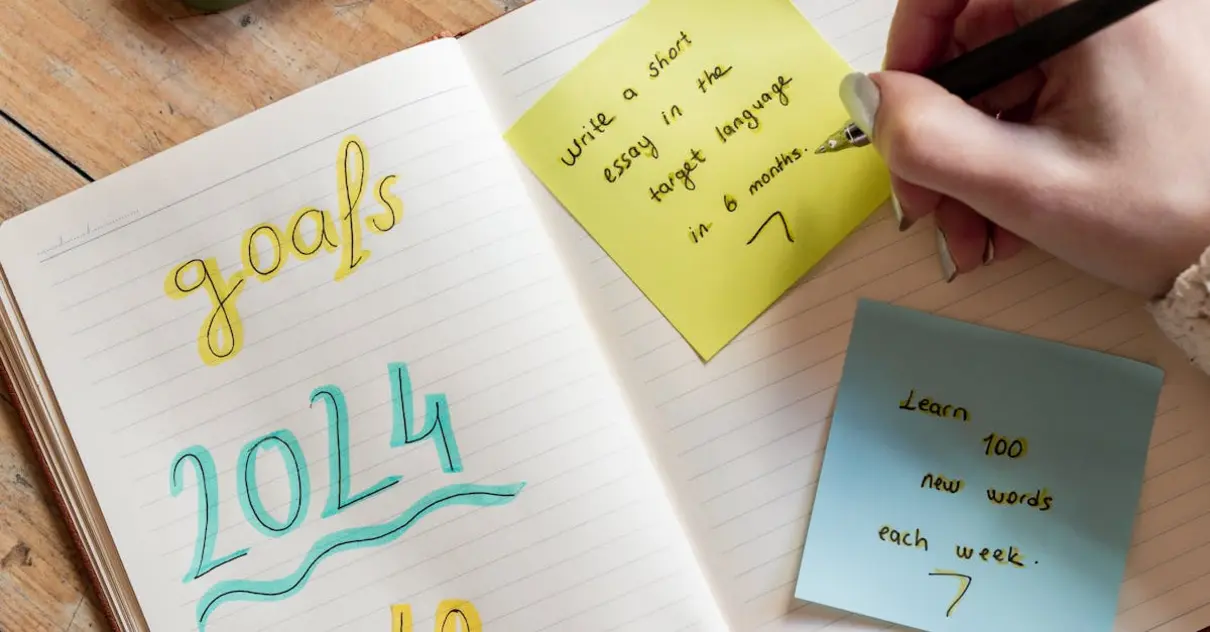 goals
2024
10
Write a short
essay in the
target language
in 6 months.
Learn
100
new words
each week.